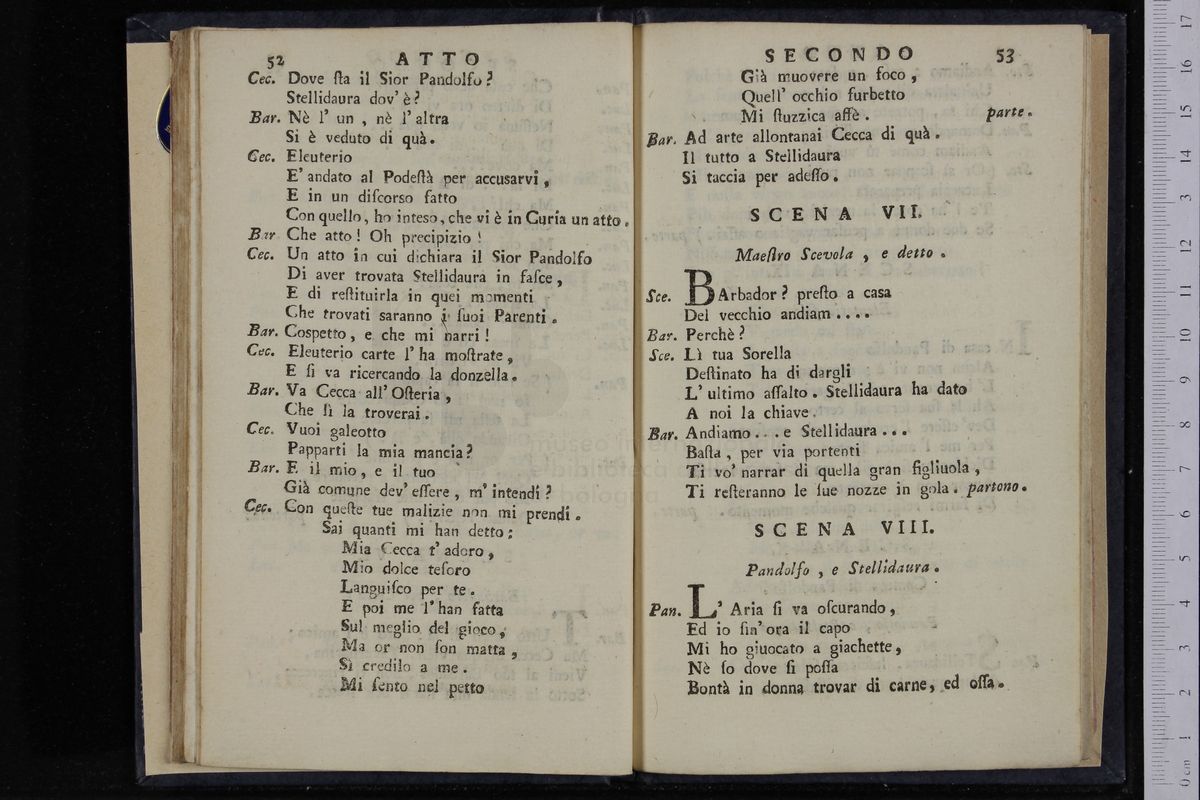 52 ATTO
Cec. Dove ſta il Sior Pandolfo?
Stellidaura dov' è?
Bar. Nè l' un , nè l' altra
Si è veduto di quà.
Cec. Eleuterio
E' andato al Podeſtà per accusarvi ,
E in un diſcorso fatto
Con quello, ho inteso, che vi è in Curia un atto.
Bar Che atto! Oh precipizio!
Cec. Un atto in cui dichiara il Sior Pandolfo
Di aver trovata Stellidaura in faſce,
E di reſtituirla in quei momenti
Che trovati saranno i ſuoi Parenti.
Bar. Cospetto, e che mi narri!
Cec. Eleuterio carte l' ha moſtrate,
E ſi va ricercando la donzella.
Bar. Va Cecca all' Oſteria,
Che lì la troverai.
Cec. Vuoi galeotto
Papparti la mia mancia?
Bar. E il mio, e il tuo
Già comune dev' eſſere, m' intendi?
Cec. Con queſte tue malizie non mi prendi.
Sai quanti mi han detto:
Mia Cecca t' adoro,
Mio dolce teſoro
Languiſco per te.
E poi me l' han fatta
Sul meglio del gioco,
Ma or non ſon matta,
Sì credilo a me.
Mi ſento nel petto
SECONDO 53
Già muovere un foco,
Quell' occhio furbetto
Mi ſtuzzica affè. parte.
Bar. Ad arte allontanai Cecca di quà.
Il tutto a Stellidaura
Si taccia per adeſſo.
SCENA VII.
Maeſtro Scevola, e detto.
Sce. BArbador? preſto a casa
Del vecchio andiam....
Bar. Perchè?
Sce. Lì tua Sorella
Deſtinato ha di dargli
L' ultimo aſſalto. Stellidaura ha dato
A noi la chiave.
Bar. Andiamo... e Stellidaura...
Baſta, per via portenti
Ti vo' narrar di quella gran figliuola,
Ti reſteranno le ſue nozze in gola. partono.
SCENA VIII.
Pandolfo, e Stellidaura.
Pan. L' Aria ſi va oſcurando,
Ed io ſin' ora il capo
Mi ho giuocato a giachette,
Nè ſo dove ſi poſſa
Bontà in donna trovar di carne, ed oſſa.